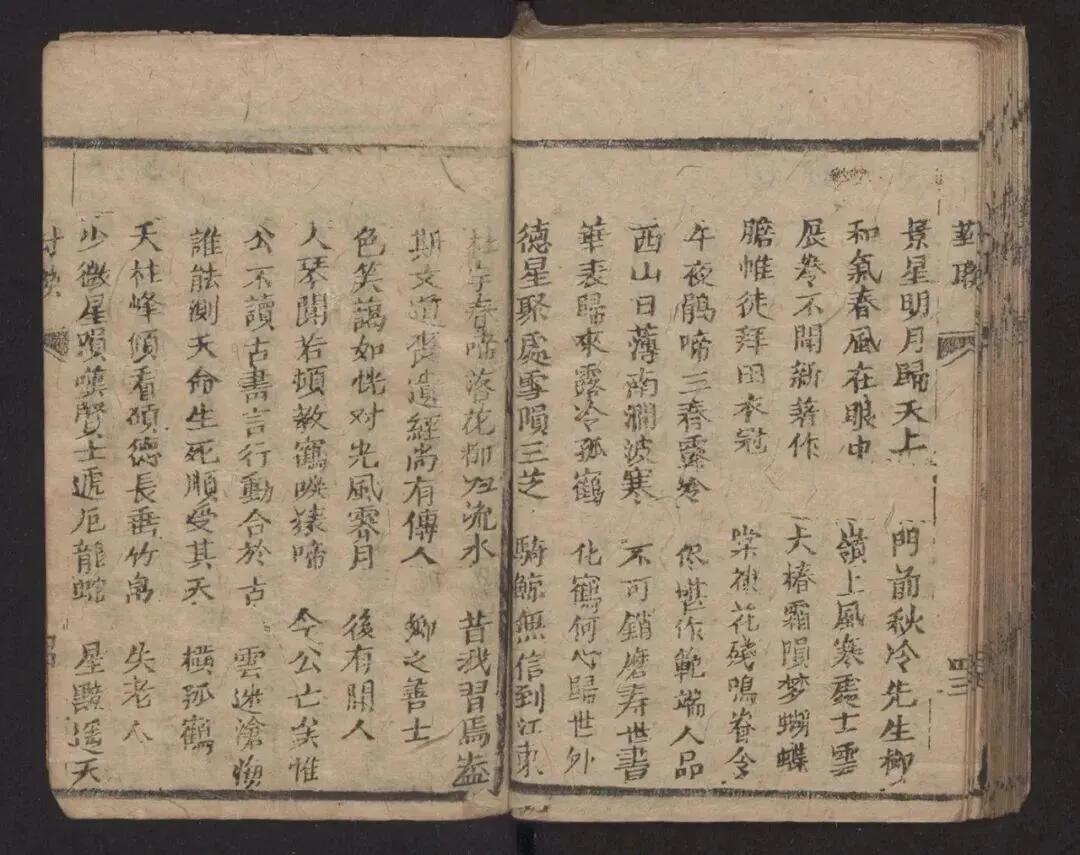 景星明月歸天上 門前秋冷先生柳
和氣春風在眼中 嶺上風寒處士雲
展卷不開新著作 大椿霜隕梦蝴蝶
瞻惟徒拜田衣冠 棠棣花殘鳴脊令
午夜鵑啼三春露冷 作範端人品
西山日薄南澗波寒 不可銷磨寿世書
華表歸來露冷孤鶴 化鶴何心歸世外
德星聚處雪隕三芝 騎鯨無信到江東
杜宇春啼落花 流水 昔我習焉
斯文道喪遺經尚有傳人 鄉之善士
色笑藹如恍对光風霽月 後有開人
人琴閴若頓教鶴唳猿啼 今公亡矣惟
公不讀古書言行動合於古 雲迷滄
誰能測天命生死順受其天 橫孤鶴
天柱峰傾看碩德長垂竹帛 失老人
少微星隕嘆賢士遞厄龍蛇 星黯遥天